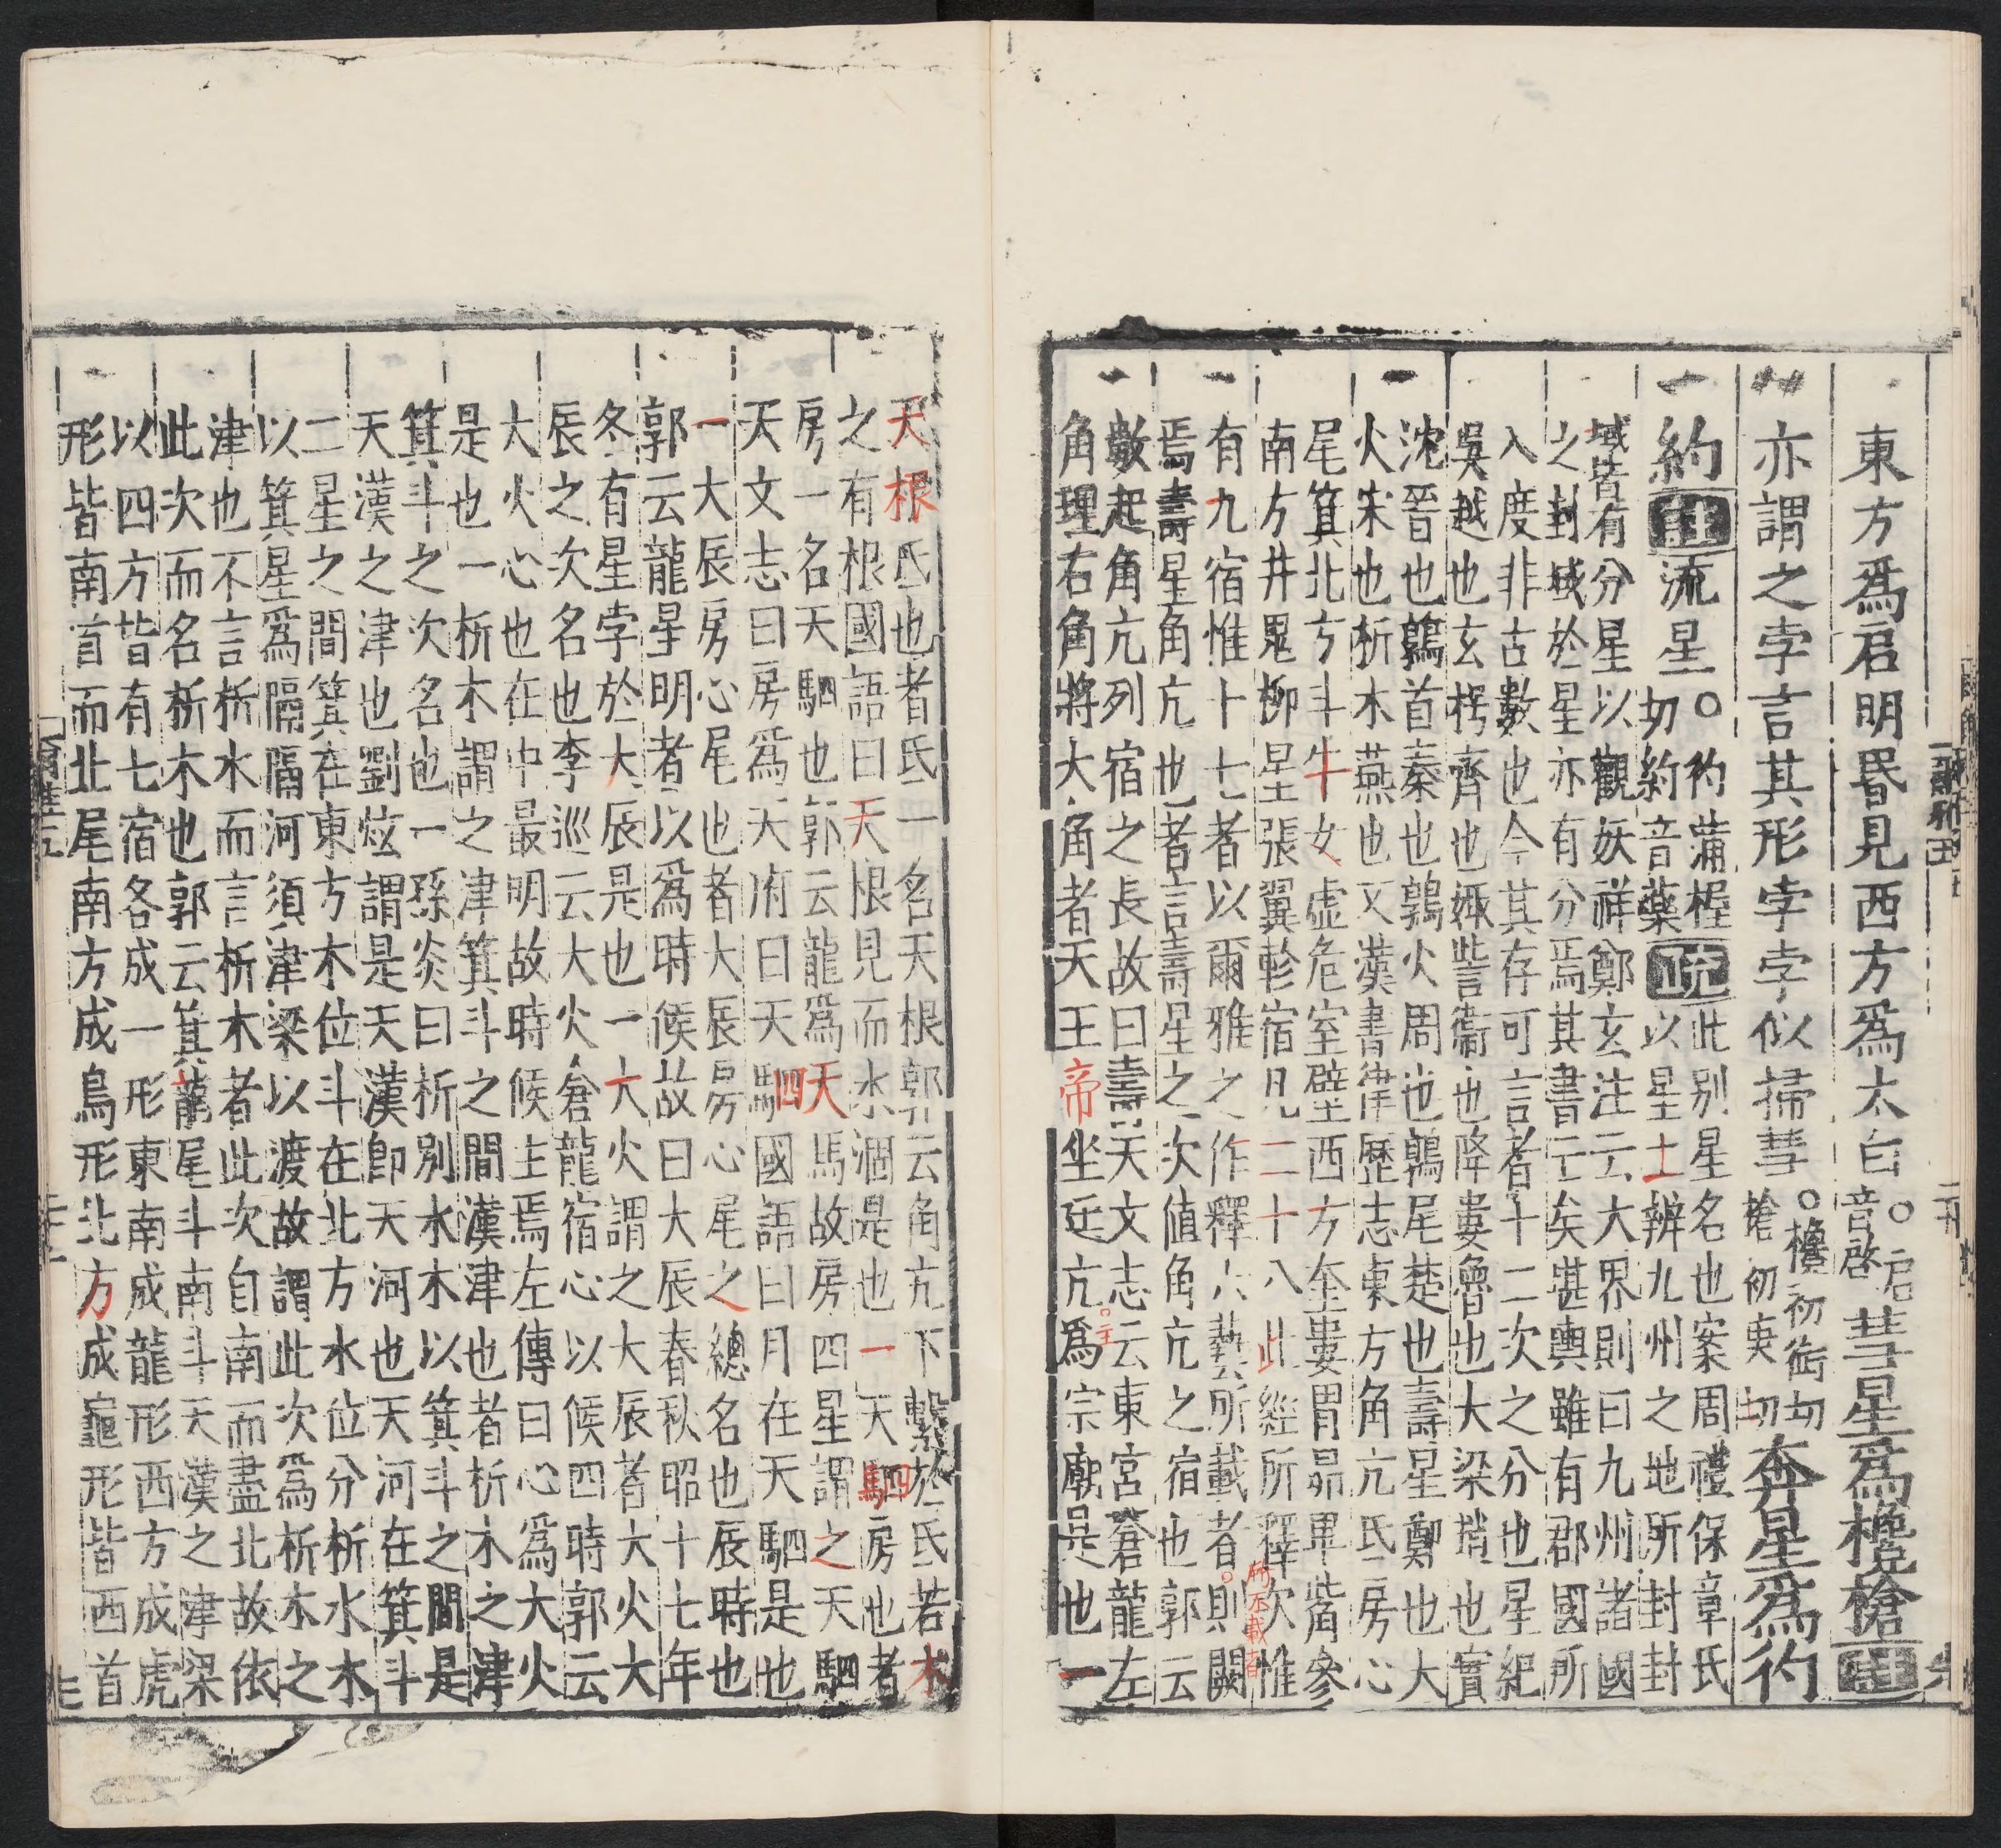 東方爲启明昏見西方爲太白○启音啓彗星爲欃槍注
亦謂之孛言其形孛孛似掃彗○欃初銜切槍初庚切奔星爲彴
約注流星○彴蒲握切約音藥疏此別星名也案周禮保章氏
以星土辨九州之地所封封
域皆有分星以觀妖祥鄭玄注云大界則曰九州諸國
之封域於星亦有分焉其書亡矣堪輿雖有郡國所
入度非古數也今其存可言者十二次之分也星紀
吳越也玄枵齊也娵訾衞也降婁魯也大梁趙也實
沈晉也鶉首秦也鶉火周也鶉尾楚也壽星鄭也大
火宋也析木燕也又漢書律歷志東方角亢氐房心
尾箕北方斗牛女虛危室壁西方奎婁胃昴畢觜參
南方井鬼柳星張翼軫宿凡二十八此經所釋次惟
有九宿惟十七者以爾雅之作釋六藝所載者則闕
所不載者
焉壽星角亢也者言壽星之次值角亢之宿也郭云
數起角亢列宿之長故曰壽天文志云東宮蒼龍左
角理右角將大角者天王帝坐廷亢爲宗廟是也一
天根氐也者氐一名天根郭云角亢下繫於氐若木
之有根國語曰天根見而水涸是也一天駟房也者
房一名天駟也郭云龍爲天馬故房四星謂之天駟
天文志曰房爲天府曰天駟國語曰月在天駟是也
一大辰房心尾也者大辰房心尾之總名也辰時也
郭云龍星明者以爲時候故曰大辰春秋昭十七年
冬有星孛於大辰是也一大火謂之大辰者大火大
辰之次名也李巡云大火倉龍宿心以候四時郭云
大火心也在中最明故時候主焉左傳曰心爲大火
是也一析木謂之津箕斗之間漢津也者析木之津
箕斗之次名也一孫炎曰析別水木以箕斗之間是
天漢之津也劉炫謂是天漢卽天河也天河在箕斗
二星之間箕在東方木位斗在北方水位分析水木
以箕星爲隔隔河須津梁以渡故謂此次爲析木之
津也不言析水而言析木者此次自南而盡北故依
此次而名析木也郭云箕龍尾斗南斗天漢之津梁
以四方皆有七宿各成一形東南成龍形西方成虎
形皆南首而北尾南方成鳥形北方成龜形皆西首